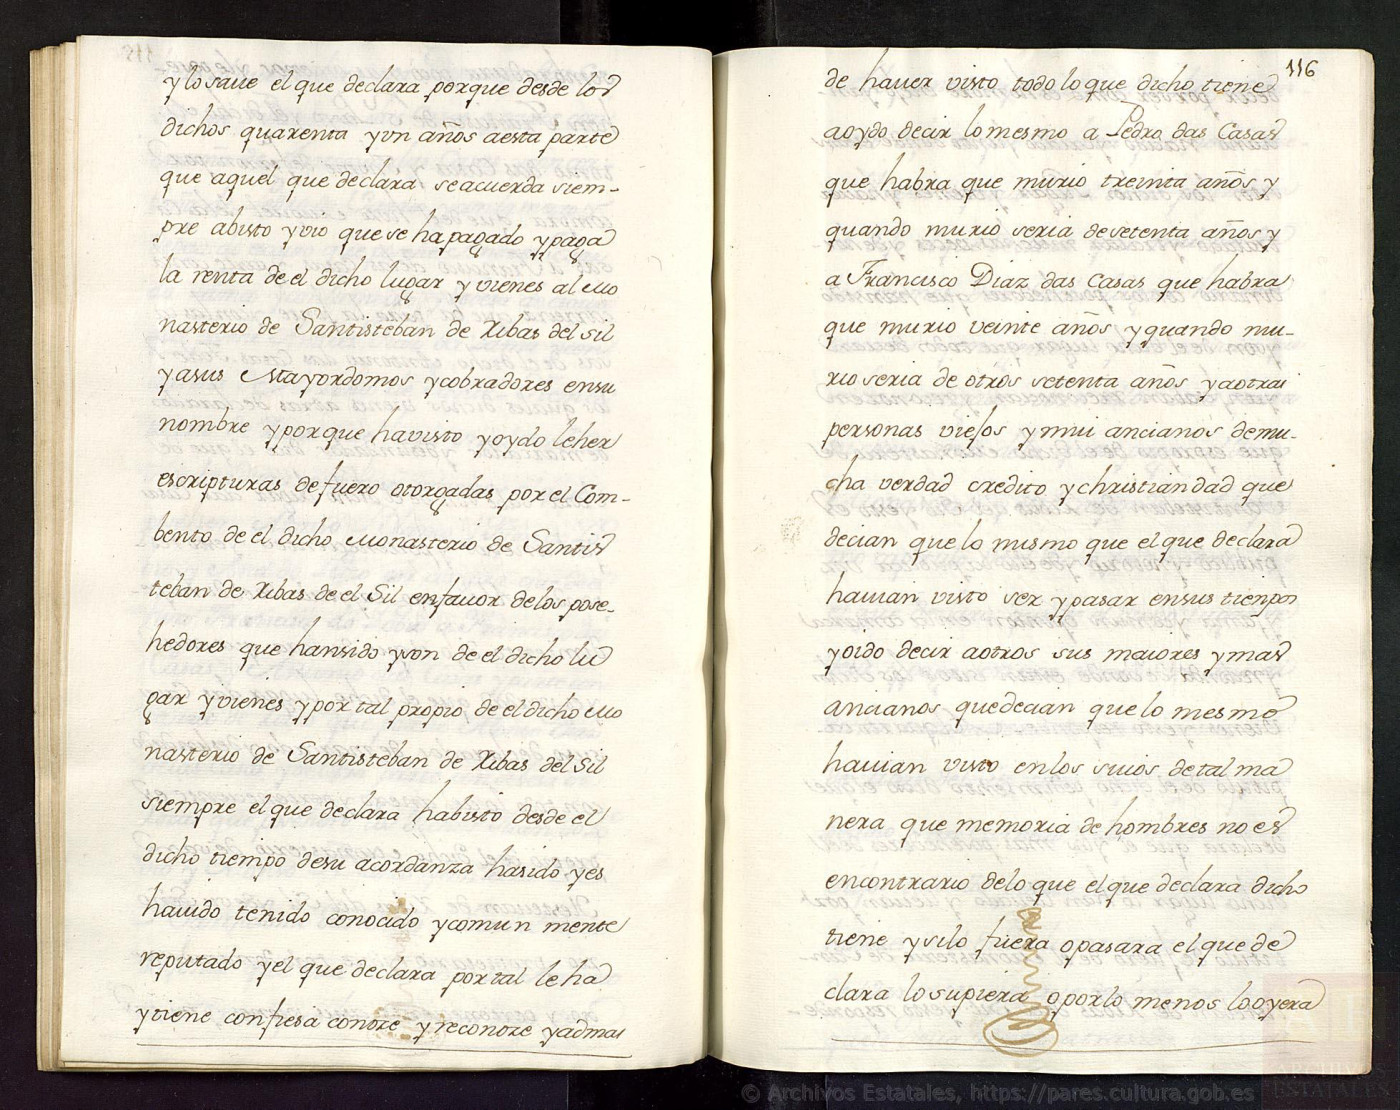 y lo saue el que declara porque desde los
dichos quarenta y un años a esta parte
que aquel que declara se acuerda siem-
pre abisto y vio que se ha pagado y paga
la renta de el dicho lugar y vienes al Mo
nasterio de Santisteban de Ribas del Sil
y a sus Mayordomos y cobradores en su
nombre y por que ha visto y oydo leher
escripturas de fuero otorgadas por el Com-
bento de el dicho Monasterio de Santis
teban de Ribas de el Sil en fauor de los pose-
hedores que han sido y son de el dicho lu
gar y vienes y por tal propio de el dicho Mo
nasterio de Santisteban de Ribas del Sil
siempre el que declara ha bisto desde el
dicho tiempo de su acordanza ha sido y es
hauido tenido conocido y comun mente
reputado y el que declara por tal le ha
y tiene confiesa conoze y reconoze y admas
116
de hauer visto todo lo que dicho tiene
a oydo decir lo mesmo a Pedro das Casas
que habra que murio treinta años y
quando murio seria de setenta años y
a Francisco Diaz das Casas que habra
que murio veinte años y quando mu-
rio seria de otros setenta años y a otras
personas viejos y mui ancianos de mu-
cha verdad credito y christiandad que
decian que lo mismo que el que declara
hauian visto ser y pasar en sus tienpos
y oido decir a otros sus maiores y mas
ancianos que decian que lo mesmo
hauian visto en los suios de tal ma
nera que memoria de hombres no es
en contrario de lo que el que declara dicho
tiene y si lo fuera o pasara el que de
clara lo supiera o por lo menos lo oyera
© Archivos Estatales, https://pares.cultura.gob.es